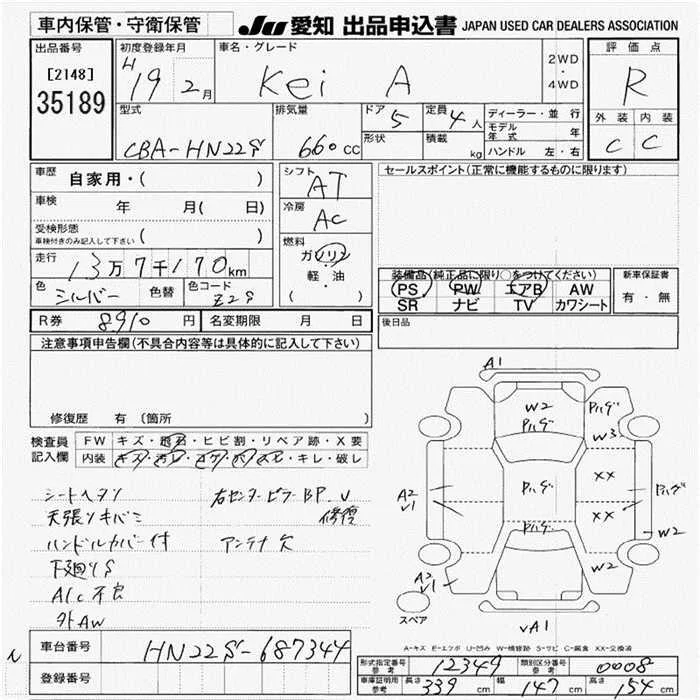 車内保管・守衛保管
JU 愛知 出品申込書 JAPAN USED CAR DEALERS ASSOCIATION
出品番号
[2148]
35189
初度登録年月
H 19 2月
車名・グレード
Kei A
2WD
・
4WD
評価点
R
外装 内装
C C
型式
CBA-HN22S
排気量
660cc
ドア
5
形状
定員
4人
積載
kg
ディーラー・並行
モデル年式 年
ハンドル 左・右
車歴
自家用・( )
車検 年 月( 日)
受検形態
車検付きのみ記入して下さい
( )
走行
13万7千170km
色 シルバー 色替 色コード Z2S
シフト
AT
冷房
AC
燃料
ガソリン
・
軽・油
( )
セールスポイント(正常に機能するものに限ります)
装備品(純正品に限り○をつけてください)
PS PW エアB AW
SR ナビ TV カワシート
新車保証書
有・無
R券 8910 円 名変期限 月 日
後日品
注意事項申告欄(不具合内容等は具体的に記入して下さい)
修復歴 有(箇所
検査員
記入欄
FW キズ・飛石・ヒビ割・リペア跡・X要
内装 キズ・汚レ・コゲ・穴・スレ・キレ・破レ
シートヘタリ
天張リキバミ
ハンドルカバー付
下廻リS
A/c不良
外AW
右センターピラーBP.U
修復
アンテナ欠
A1
W2
Pハゲ
Pハゲ
W3
Pハゲ
XX
XX
Pハゲ
W2
A2
V1
Pハゲ
A2
V1
W2
VA1
スペア
A-キズ E-エクボ U-凹み W-補修跡 S-サビ C-腐食 XX-交換済
車台番号 HN22S-687344
登録番号
形式指定番号
参考
12349
類別区分番号
参考
0008
車庫証明用
参考
長さ 339 cm 幅 147 cm 高さ 154 cm